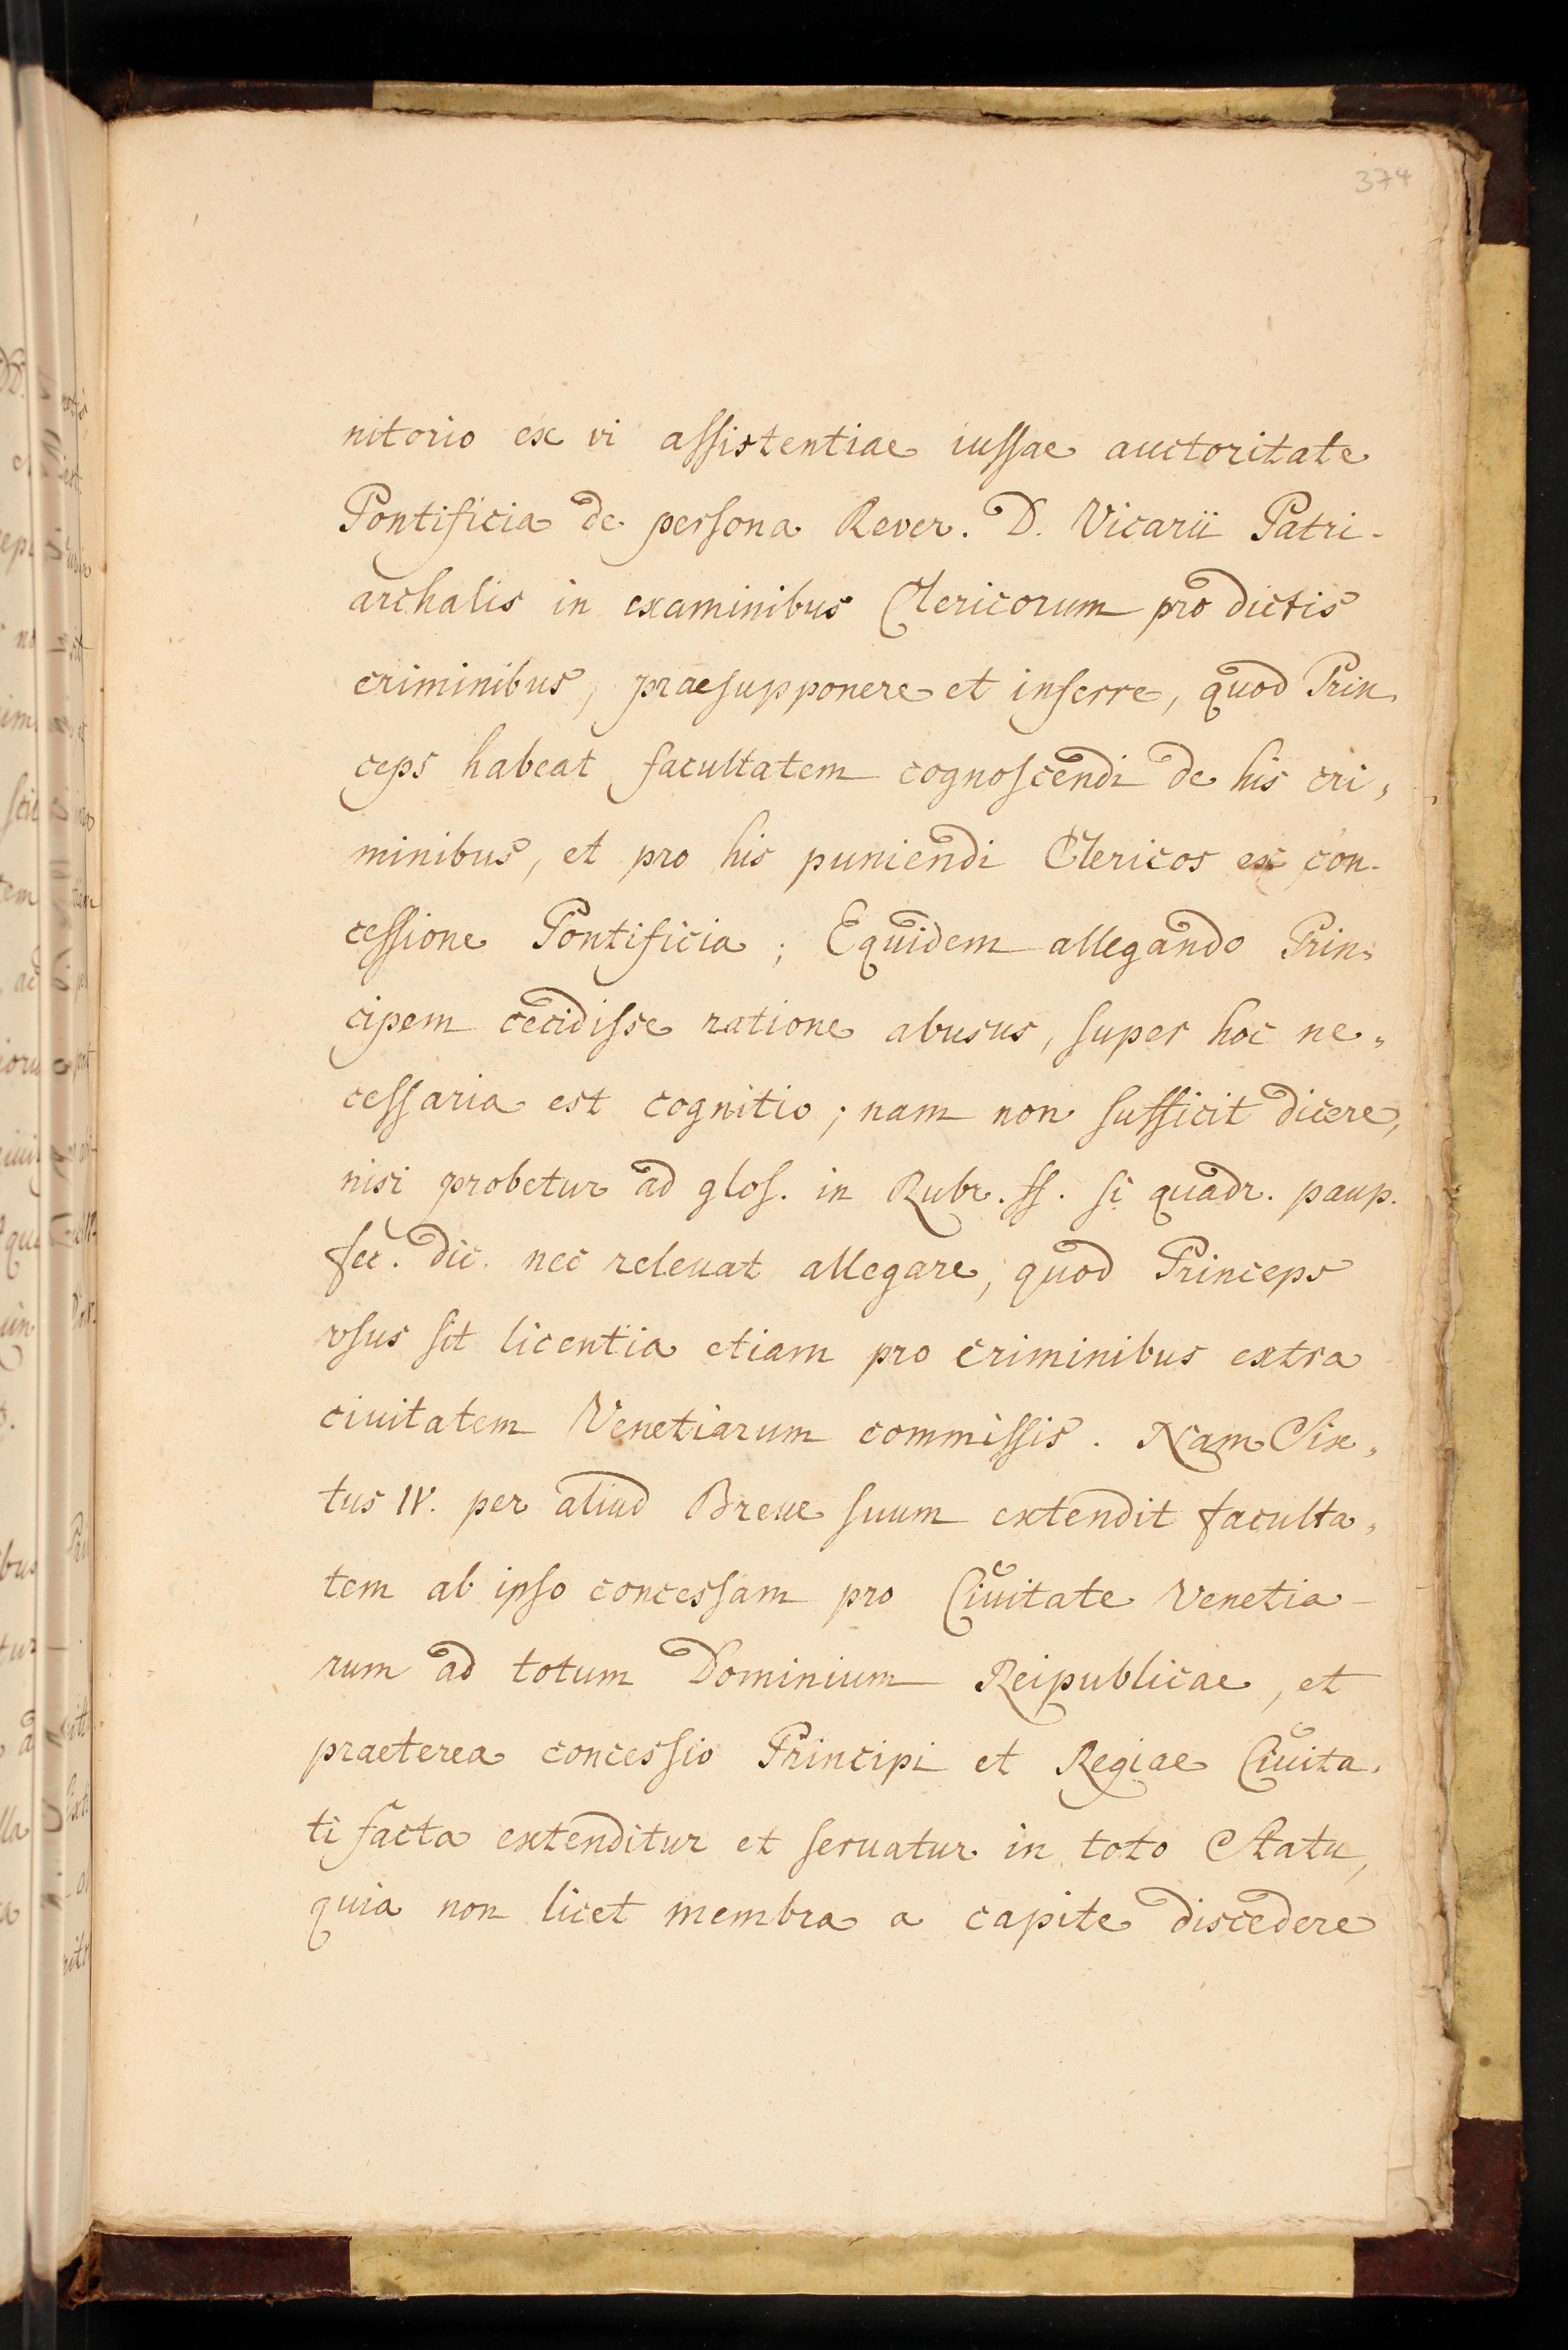 374
nitorio ex vi assistentiae iussae auctoritate
Pontificia de persona Rever. D. Vicarii Patri-
archalis in examinibus Clericorum pro dictis
criminibus, praesupponere et inferre, quod Prin,
ceps habeat facultatem cognoscendi de his cri,
minibus, et pro his puniendi Clericos ex con-
cessione Pontificia; Equidem allegando Prin,
cipem cecidisse ratione abusus, super hoc ne,
cessaria est cognitio; nam non sufficit dicere,
nisi probetur ad glos. in Rubr. ff. si quadr. paup.
fec. dic. nec releuat allegare, quod Princeps
vsus sit licentia etiam pro criminibus extra
ciuitatem Venetiarum commissis. Nam Six,
tus IV. per aliud Breue suum extendit faculta,
tem ab ipso concessam pro Ciuitate Venetia-
rum ad totum Dominium Reipublicae, et
praeterea concessio Principi et Regiae Ciuita,
ti facta extenditur et seruatur in toto Statu,
quia non licet membra a capite discedere